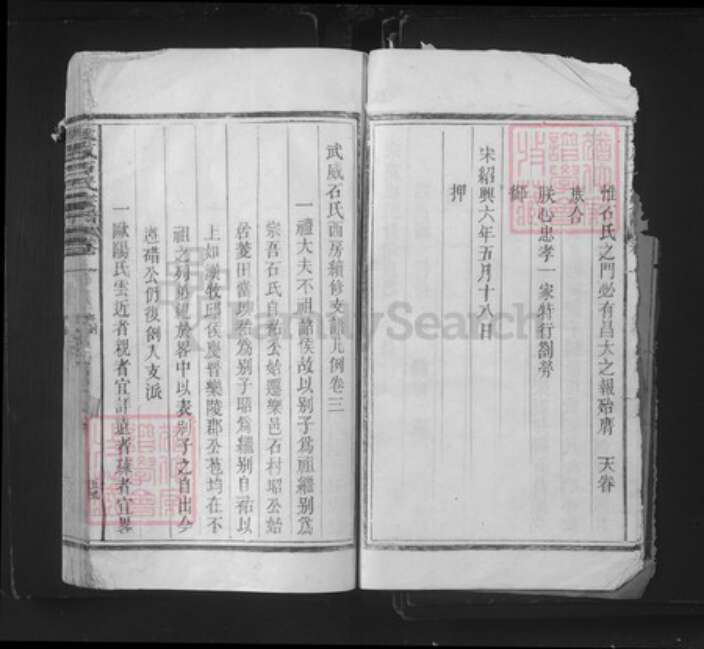 惟石氏之門必有昌大之報殆膺　天眷
族合
朕心忠孝一家特行劄勞
御
宋紹興六年五月十八日
押
武威石氏西房續修支譜凡例卷三
一禮大夫不祖諸侯故以别子爲祖繼别爲
宗吾石氏自祐公始遷樂邑石村昭公始
居菱田當以祐爲别子昭爲繼别自祐以
上如漢牧邱侯慶晉樂陵郡公苞均在不
祖之列第 於畧中以表别子之自出今
遵碏公仍復例入支派
一歐陽氏雲近者視者宜詳遠者疎者宜畧
FamilySearch